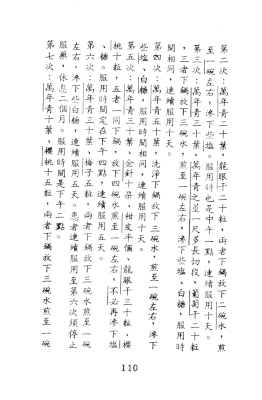 第二次：萬年青三十葉、龍眼干二十粒，兩者下鍋放下二碗水，煎
至一碗左右，滲下些塩。服用時也是中午一點，連續服用十天。
第三次：萬年青三十葉、萬年青之莖一尺多長切段、葡萄干二十粒
，三者下鍋放下三碗水，煎至一碗左右，滲下些塩、白糖，服用時
間相同，連續服用十天。
第四次：萬年青三十葉，洗淨下鍋放下三碗水，煎至一碗左右，滲下
些塩、白糖，服用時間相同，連續服用十天。
第五次：萬年青三十葉、金針十朵、柑皮半個、龍眼干三十粒、櫻
桃十粒，五者一同下鍋，放下四碗水煎至一碗左右，不必再滲下塩
、糖。服用時間定在下午四點，連續服用五天。
第六次：萬年青三十葉、梅子五粒，兩者下鍋放下三碗水煎至一碗
左右，滲下些白糖，連續服用五天。患者連續服用至第六次須停止
服藥，休息二個月。服用時間是下午二點。
第七次：萬年青三十葉、櫻桃十五粒，兩者下鍋放下三碗水煎至一
110